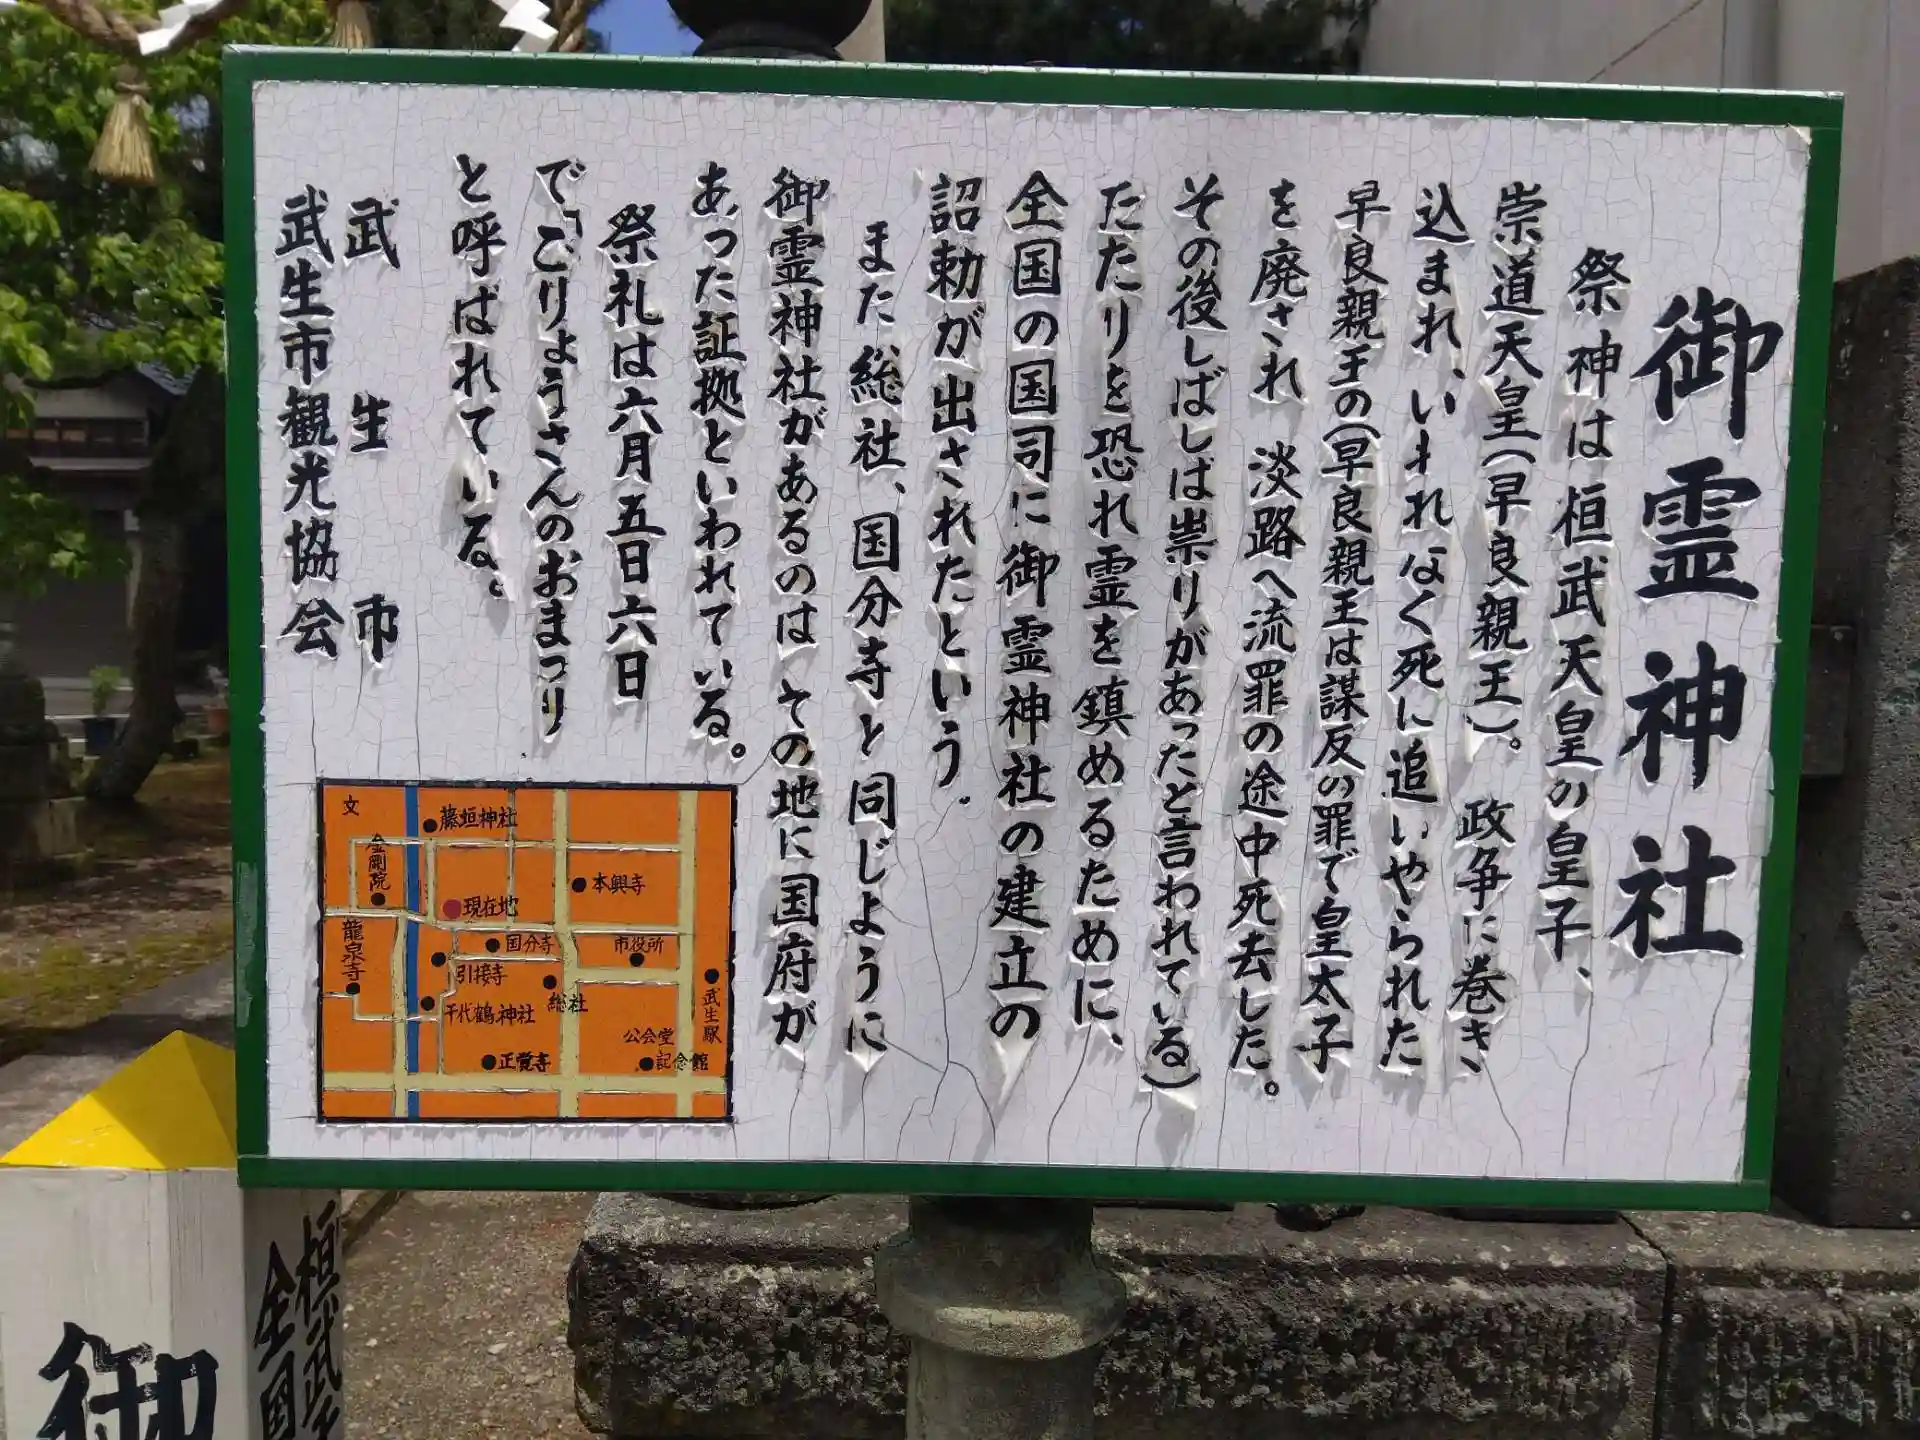 御霊神社
祭神は桓武天皇の皇子、
崇道天皇(早良親王)。政争に巻き
込まれ、いわれなく死に追いやられた
早良親王の(早良親王は謀反の罪で皇太子
を廃され 淡路へ流罪の途中死去した。
その後しばしば祟りがあったと言われている)
たたりを恐れ霊を鎮めるために、
全国の国司に御霊神社の建立の
詔勅が出されたという。
また総社、国分寺と同じように
御霊神社があるのは その地に国府が
あった証拠といわれている。
祭礼は六月五日六日
で「ごりょうさんのおまつり
と呼ばれている。
武生市
武生市観光協会
文
藤垣神社
金剛院
本興寺
現在地
龍泉寺
国分寺
市役所
引接寺
総社
武生駅
千代鶴神社
公会堂
記念館
正覚寺
御
桓武天
全国